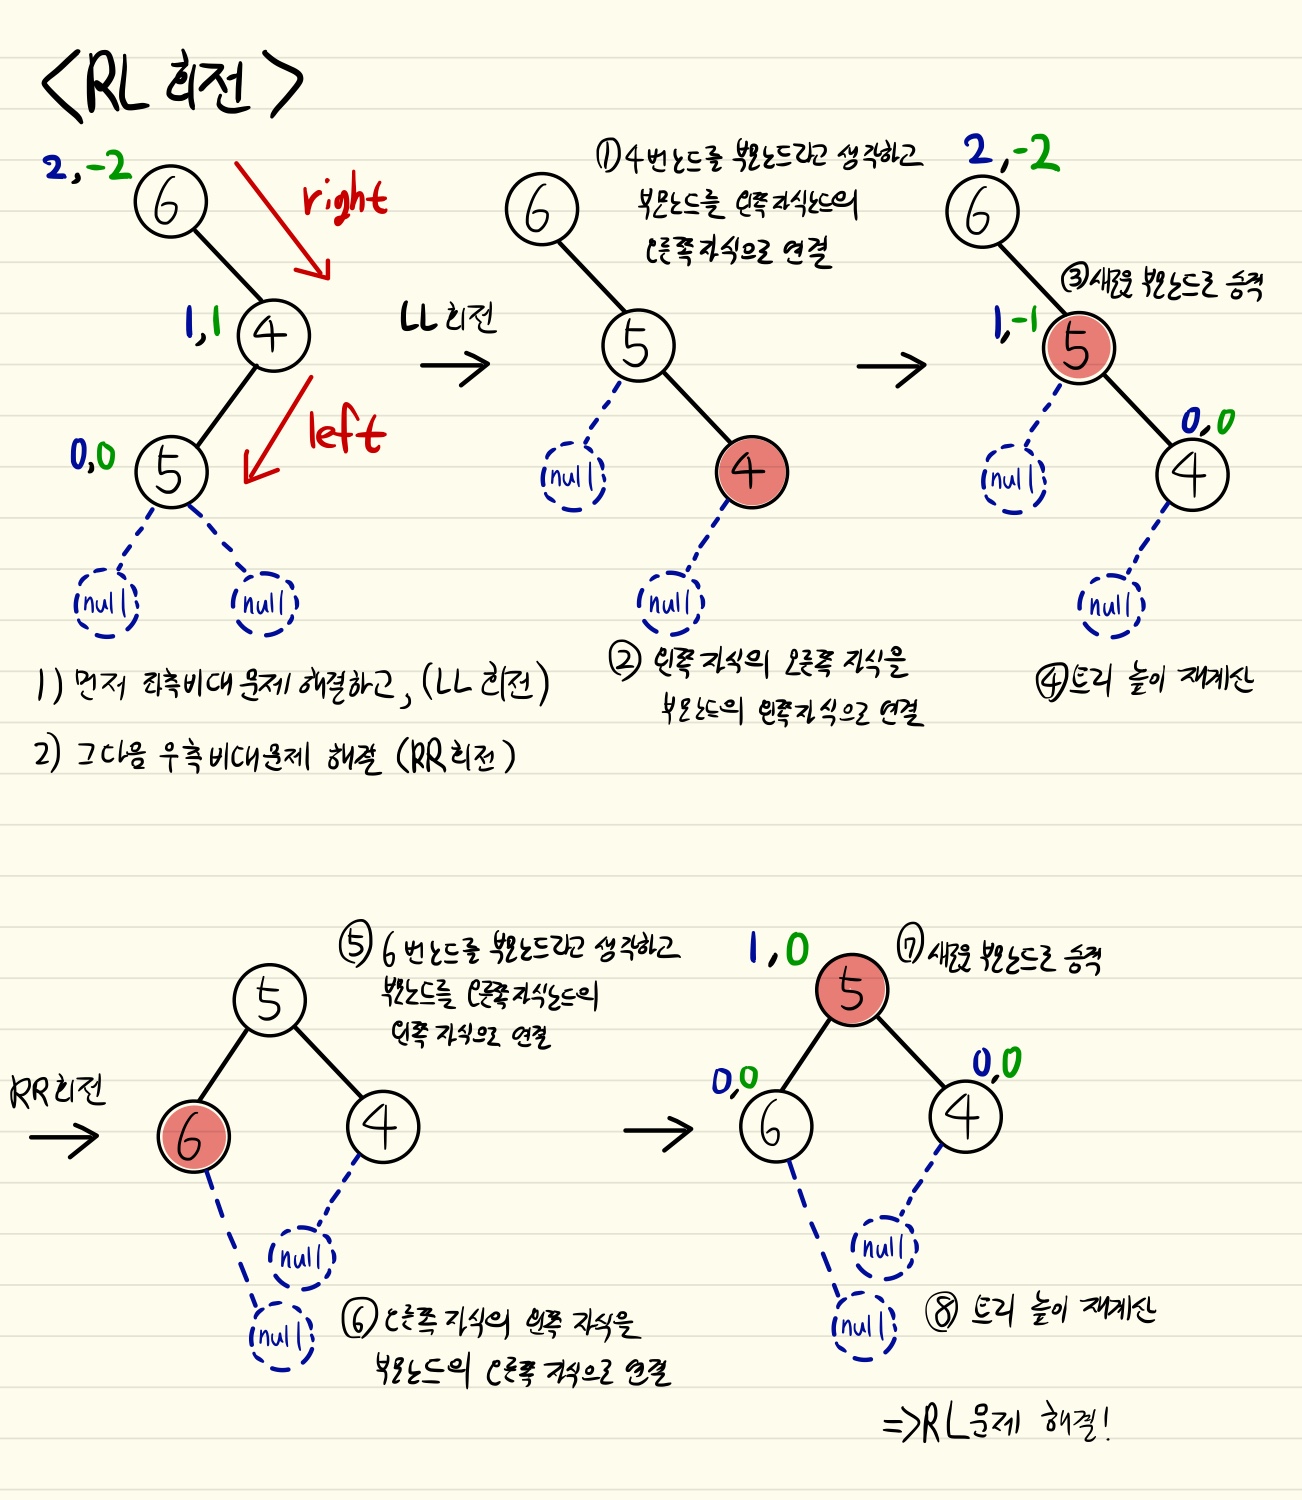 <RL 회전>
2,-2
6
right
1,1
4
left
0,0
5
null
null
LL 회전
① 4번노드를 부모노드라고 생각하고
부모노드를 왼쪽자식노드의
오른쪽자식으로 연결
6
5
null
4
null
② 왼쪽 자식의 오른쪽 자식을
부모노드의 왼쪽자식으로 연결
2,-2
6
③ 새로운 부모노드로 승격
1,-1
5
0,0
null
4
null
④ 트리 높이 재계산
1) 먼저 좌측비대 문제 해결하고, (LL 회전)
2) 그다음 우측비대문제 해결 (RR 회전)
RR 회전
⑤ 6번노드를 부모노드라고 생각하고
부모노드를 오른쪽자식노드의
왼쪽 자식으로 연결
5
6
4
null
null
⑥ 오른쪽 자식의 왼쪽 자식을
부모노드의 오른쪽 자식으로 연결
1,0
5
⑦ 새로운 부모노드로 승격
0,0
0,0
6
4
null
null
⑧ 트리 높이 재계산
=>RL문제 해결!